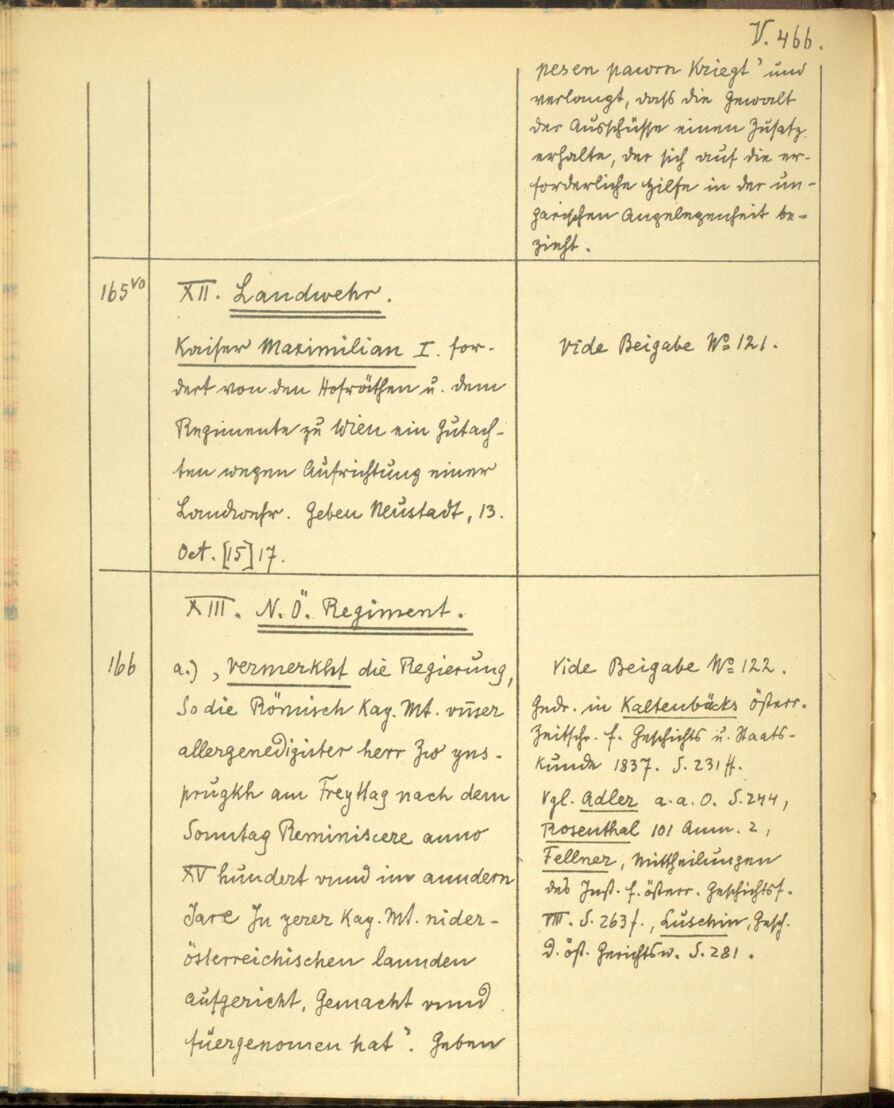 V. 466.
pesen pawrn Kriegt' und
verlangt, dass die Gewalt
der Ausschüsse einen Zusatz
erhalte, der sich auf die er-
forderliche Hilfe in der un-
garischen Angelegenheit be-
zieht.
165vo
XII. Landwehr.
Kaiser Maximilian I. for-
dert von den Hofräthen u. dem
Regimente zu Wien ein Gutach-
ten wegen Aufrichtung einer
Landwehr. Geben Neustadt, 13.
Oct. [15]17.
Vide Beigabe No 121.
XIII. N. Ö. Regiment.
166
a.) ‚Vermerkht die Regierung,
So die Römisch Kay. Mt. vnser
allergenedigister herr Zw yns-
prugkh am FreyHag nach dem
Sonntag Reminiscere anno
XV hundert vnnd im anndern
Jare In yerer Kay. Mt. nider-
österreichischen lannden
aufgericht, Gemacht vnnd
fuergenomen hat'. Geben
Vide Beigabe No 122.
Gedr. in Kaltenbäcks österr.
Zeitschr. f. Geschichts u. Staats-
kunde 1837. S. 231 ff.
Vgl. Adler a. a. O. S. 244,
Rosenthal 101 Anm. 2,
Fellner, Mittheilungen
des Inst. f. österr. Geschichtsf.
VIII. S. 263 f., Luschin, Gesch.
d. öst. Gerichtsw. S. 281.